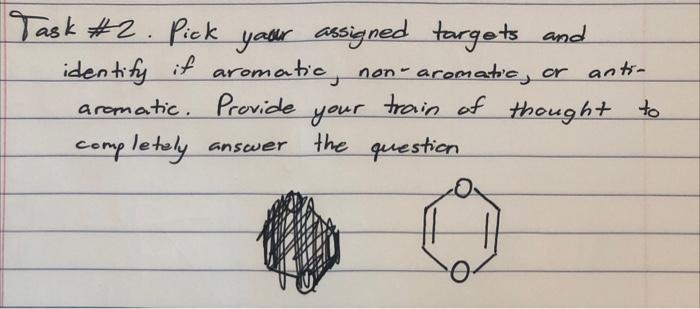 Task #2. Pick your assigned targets and
identify if aromatic, non-aromatic, or anti-
aromatic. Provide your train of thought to
completely answer the question
O
O